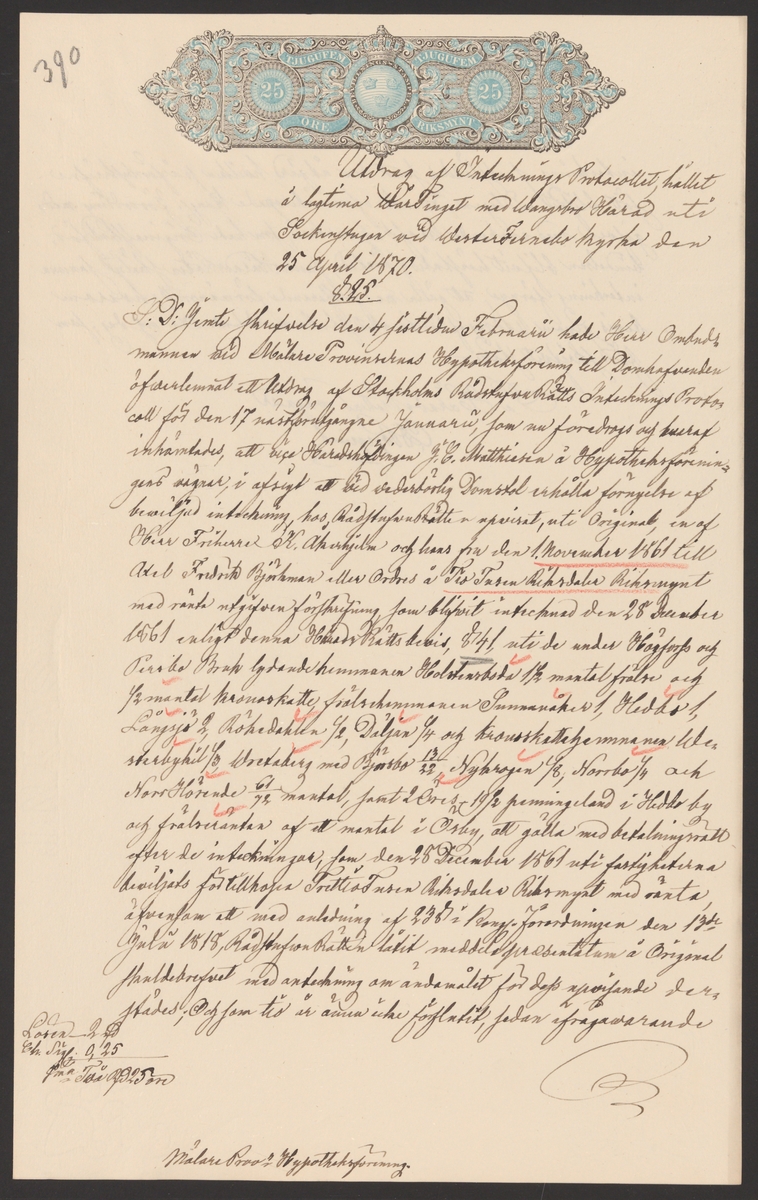 390
TJUGUFEM TJUGUFEM
25 25
ÖRE RIKSMYNT
Utdrag af Intecknings Protocollet, hållet
å lagtima WårTinget med Wangsbro Härad uti
Sockenstugan wid WesterFernebo Kyrka den
25 April 1870.
§. 25.
S: D: Jemte skrifvelse den 4 sistlidne Februarii hade Herr Ombuds-
mannen wid Mälare Provinsernas Hypotheksförening till Domhafvanden
öfverlemnat ett Utdrag af Stockholms RådstufvuRätts Intecknings Proto-
coll för den 17 nästförutgångne Januarii, som nu föredrogs och hvaraf
inhämtades, att vice Häradshöfdingen J. E. Matthiesen å Hypotheksförenin-
gens vägnar, i afsigt att vid vederbörlig Domstol erhålla förnyelse af
beviljad inteckning, hos RådstufvuRätten uppvisat, uti Original, en af
Herr Friherre K. Åkerhjelm och hans fru den 1 November 1861 till
Axel Fredrik Björkman eller Ordres å Tio Tusen Riksdaler Riksmynt
med ränta utgifven förskrifning, som blifvit intecknad den 28 December
1861 enligt denna HäradsRätts bevis, § 41, uti de under Högfors och
Persbo Bruk lydande hemmanen Holstensboda 1 1/2 mantal frälse och
1/2 mantal kronoskatte, frälsehemmanen Sunnanåker 1, Hedbo 1,
Långsjö 2, Rökedahlen 1/2, Däljan 1/4 och kronoskattehemmanen We-
sterbyhil 1/3, Wretaberg med Bjursbo 13/32, Nykrogen 1/8, Norrbo 1/4 och
Norr Hörende 61/72 mantal, samt 2 öres 19 1/2 penningeland i Hedbo by
och frälseräntan af ett mantal i Ösby, att gälla med betalningsrätt
efter de inteckningar, som den 28 December 1861 uti fastigheterna
beviljats för tillhopa Trettio Tusen Riksdaler Riksmynt med ränta,
äfvensom att med anledning af 23 § i Kongl. Förordningen den 13de
Julii 1818, RådstufvuRätten låtit meddela præsentatum å Original
skuldebrefvet med anteckning om ändamålet för dess uppvisande der-
städes; Och som tio år ännu icke förflutit, sedan ifrågawarande
Lösen 2 Rd
Ch. Sig. 0,25
Sma Två Rd 25 öre
Mälare Prov:s Hypotheksförening.